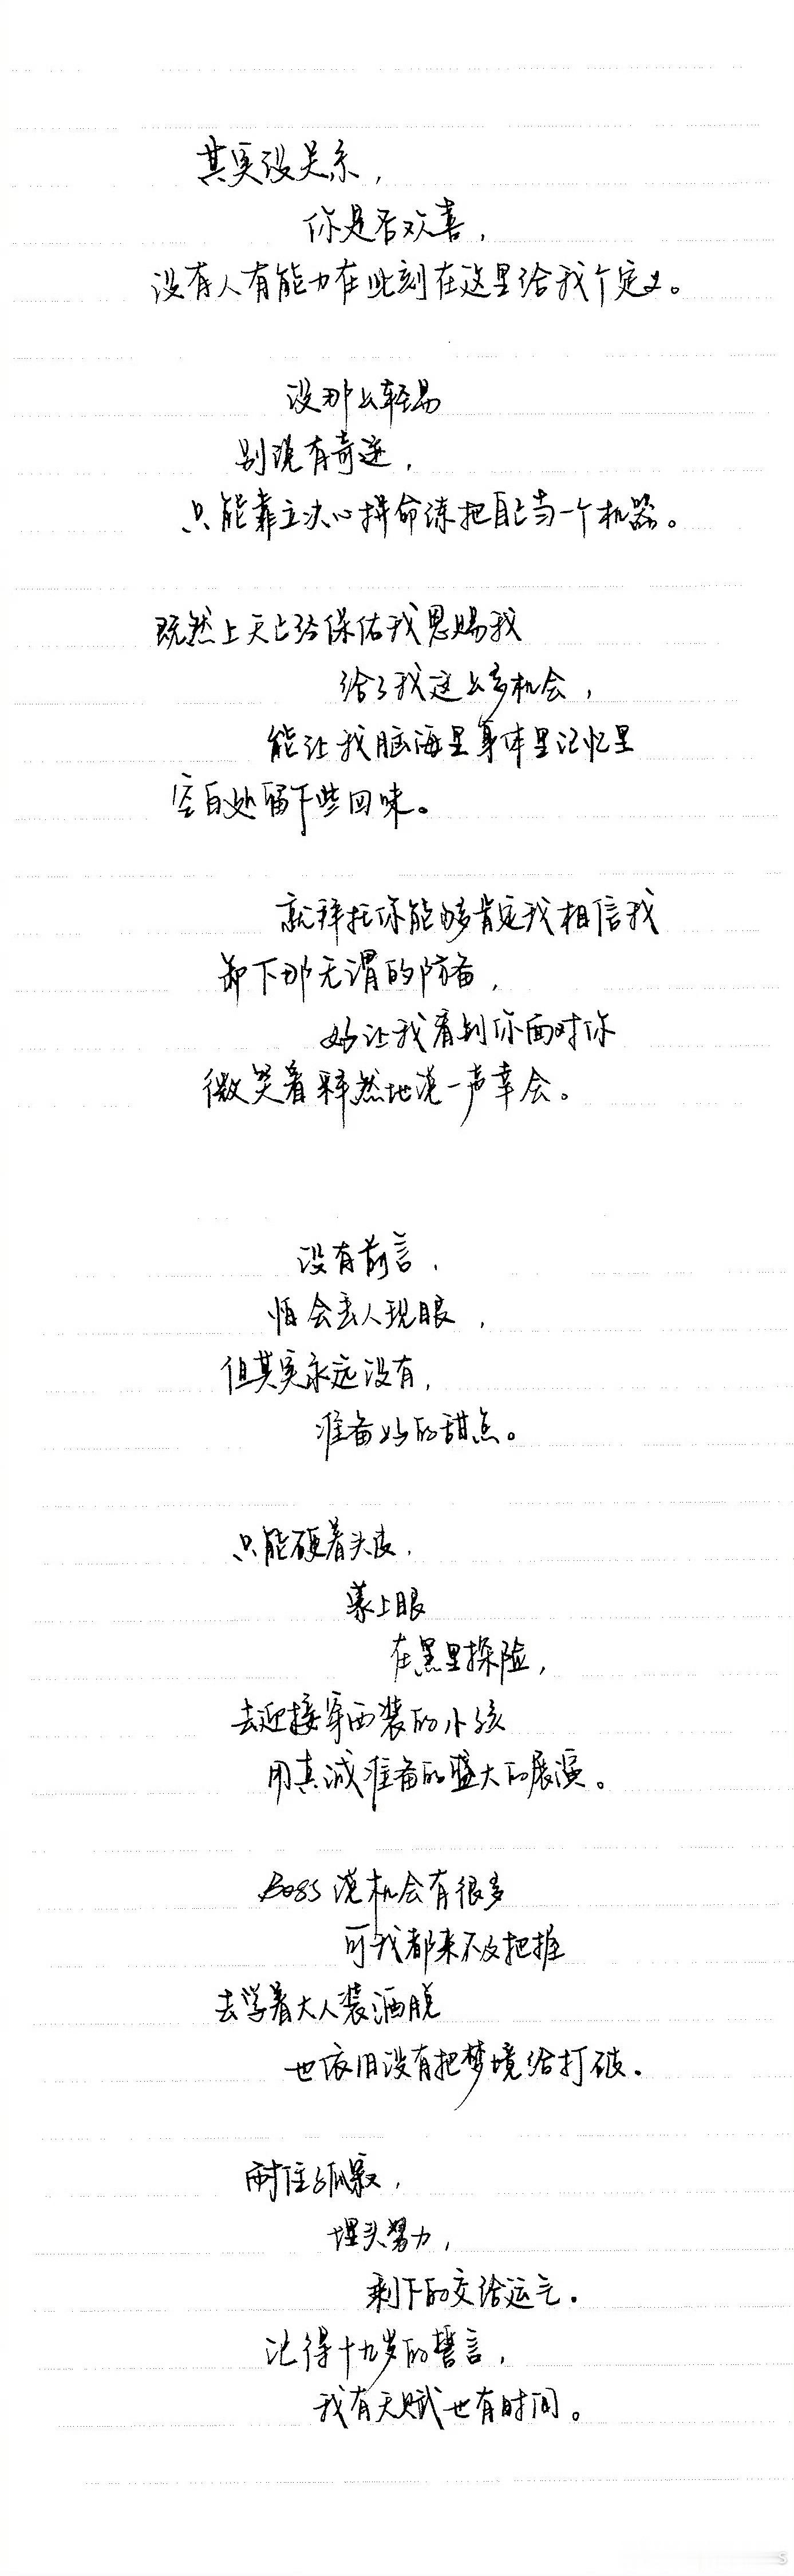 其实没关系，
你是否欢喜，
没有人有能力在此刻在这里给我个定义。
没那么轻易
别说有奇迹，
只能靠立决心拼命练把自己当一个机器。
既然上天已经保佑我恩赐我
给了我这么多机会，
能让我脑海里身体里记忆里
空白处留下些回味。
就拜托你能够肯定我相信我
卸下那无谓的防备，
好让我看到你面对你
微笑着释然地说一声幸会。
没有前言，
怕会丢人现眼，
但其实永远没有，
准备好的甜点。
只能硬着头皮，
蒙上眼
在黑里探险，
去迎接穿西装的小孩
用真诚准备的盛大的展演。
Boss说机会有很多
可我都来不及把握
去学着大人装洒脱
也依旧没有把梦境给打破．
耐住孤寂，
埋头努力，
剩下的交给运气．
记得十九岁的誓言，
我有天赋也有时间。